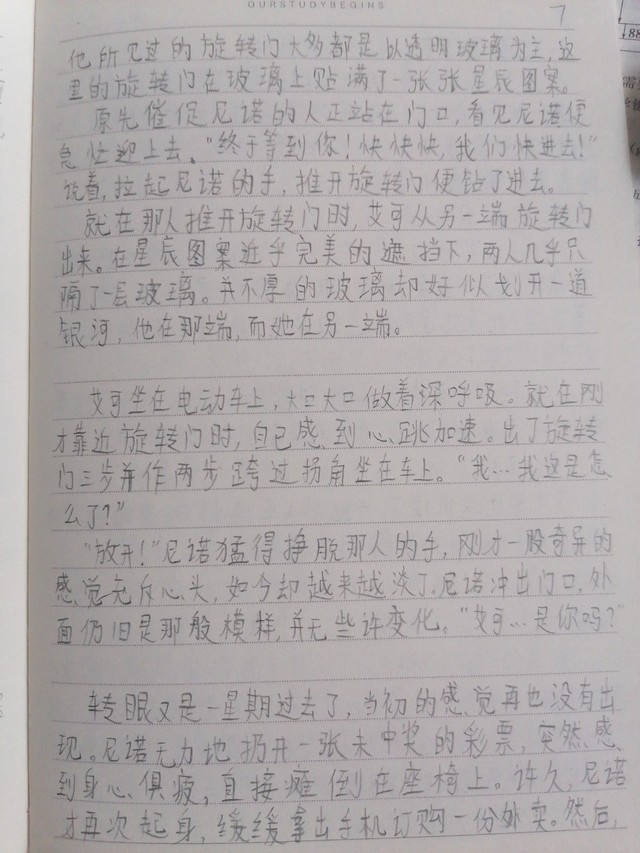 OURSTUDYBEGINS
7
他所见过的旋转门大多都是以透明玻璃为主,这
里的旋转门在玻璃上贴满了一张张星辰图案。
原先催促尼诺的人正站在门口,看见尼诺便
急忙迎上去。“终于等到你!快快快,我们快进去!”
说着,拉起尼诺的手,推开旋转门便钻了进去。
就在那人推开旋转门时,艾可从另一端旋转门
出来。在星辰图案近乎完美的遮挡下,两人几乎只
隔了一层玻璃。并不厚的玻璃却好似划开一道
银河,他在那端,而她在另一端。
艾可坐在电动车上,大口大口做着深呼吸。就在刚
才靠近旋转门时,自己感到心跳加速。出了旋转
门三步并作两步跨过拐角坐在车上。“我…我这是怎
么了?”
“放开!”尼诺猛得挣脱那人的手,刚才一股奇异的
感觉充斥心头,如今却越来越淡了。尼诺冲出门口,外
面仍旧是那般模样,并无些许变化。“艾可…是你吗?”
转眼又是一星期过去了,当初的感觉再也没有出
现。尼诺无力地扔开一张未中奖的彩票,突然感
到身心俱疲,直接瘫倒在座椅上。许久,尼诺
才再次起身,缓缓拿出手机订购一份外卖。然后,